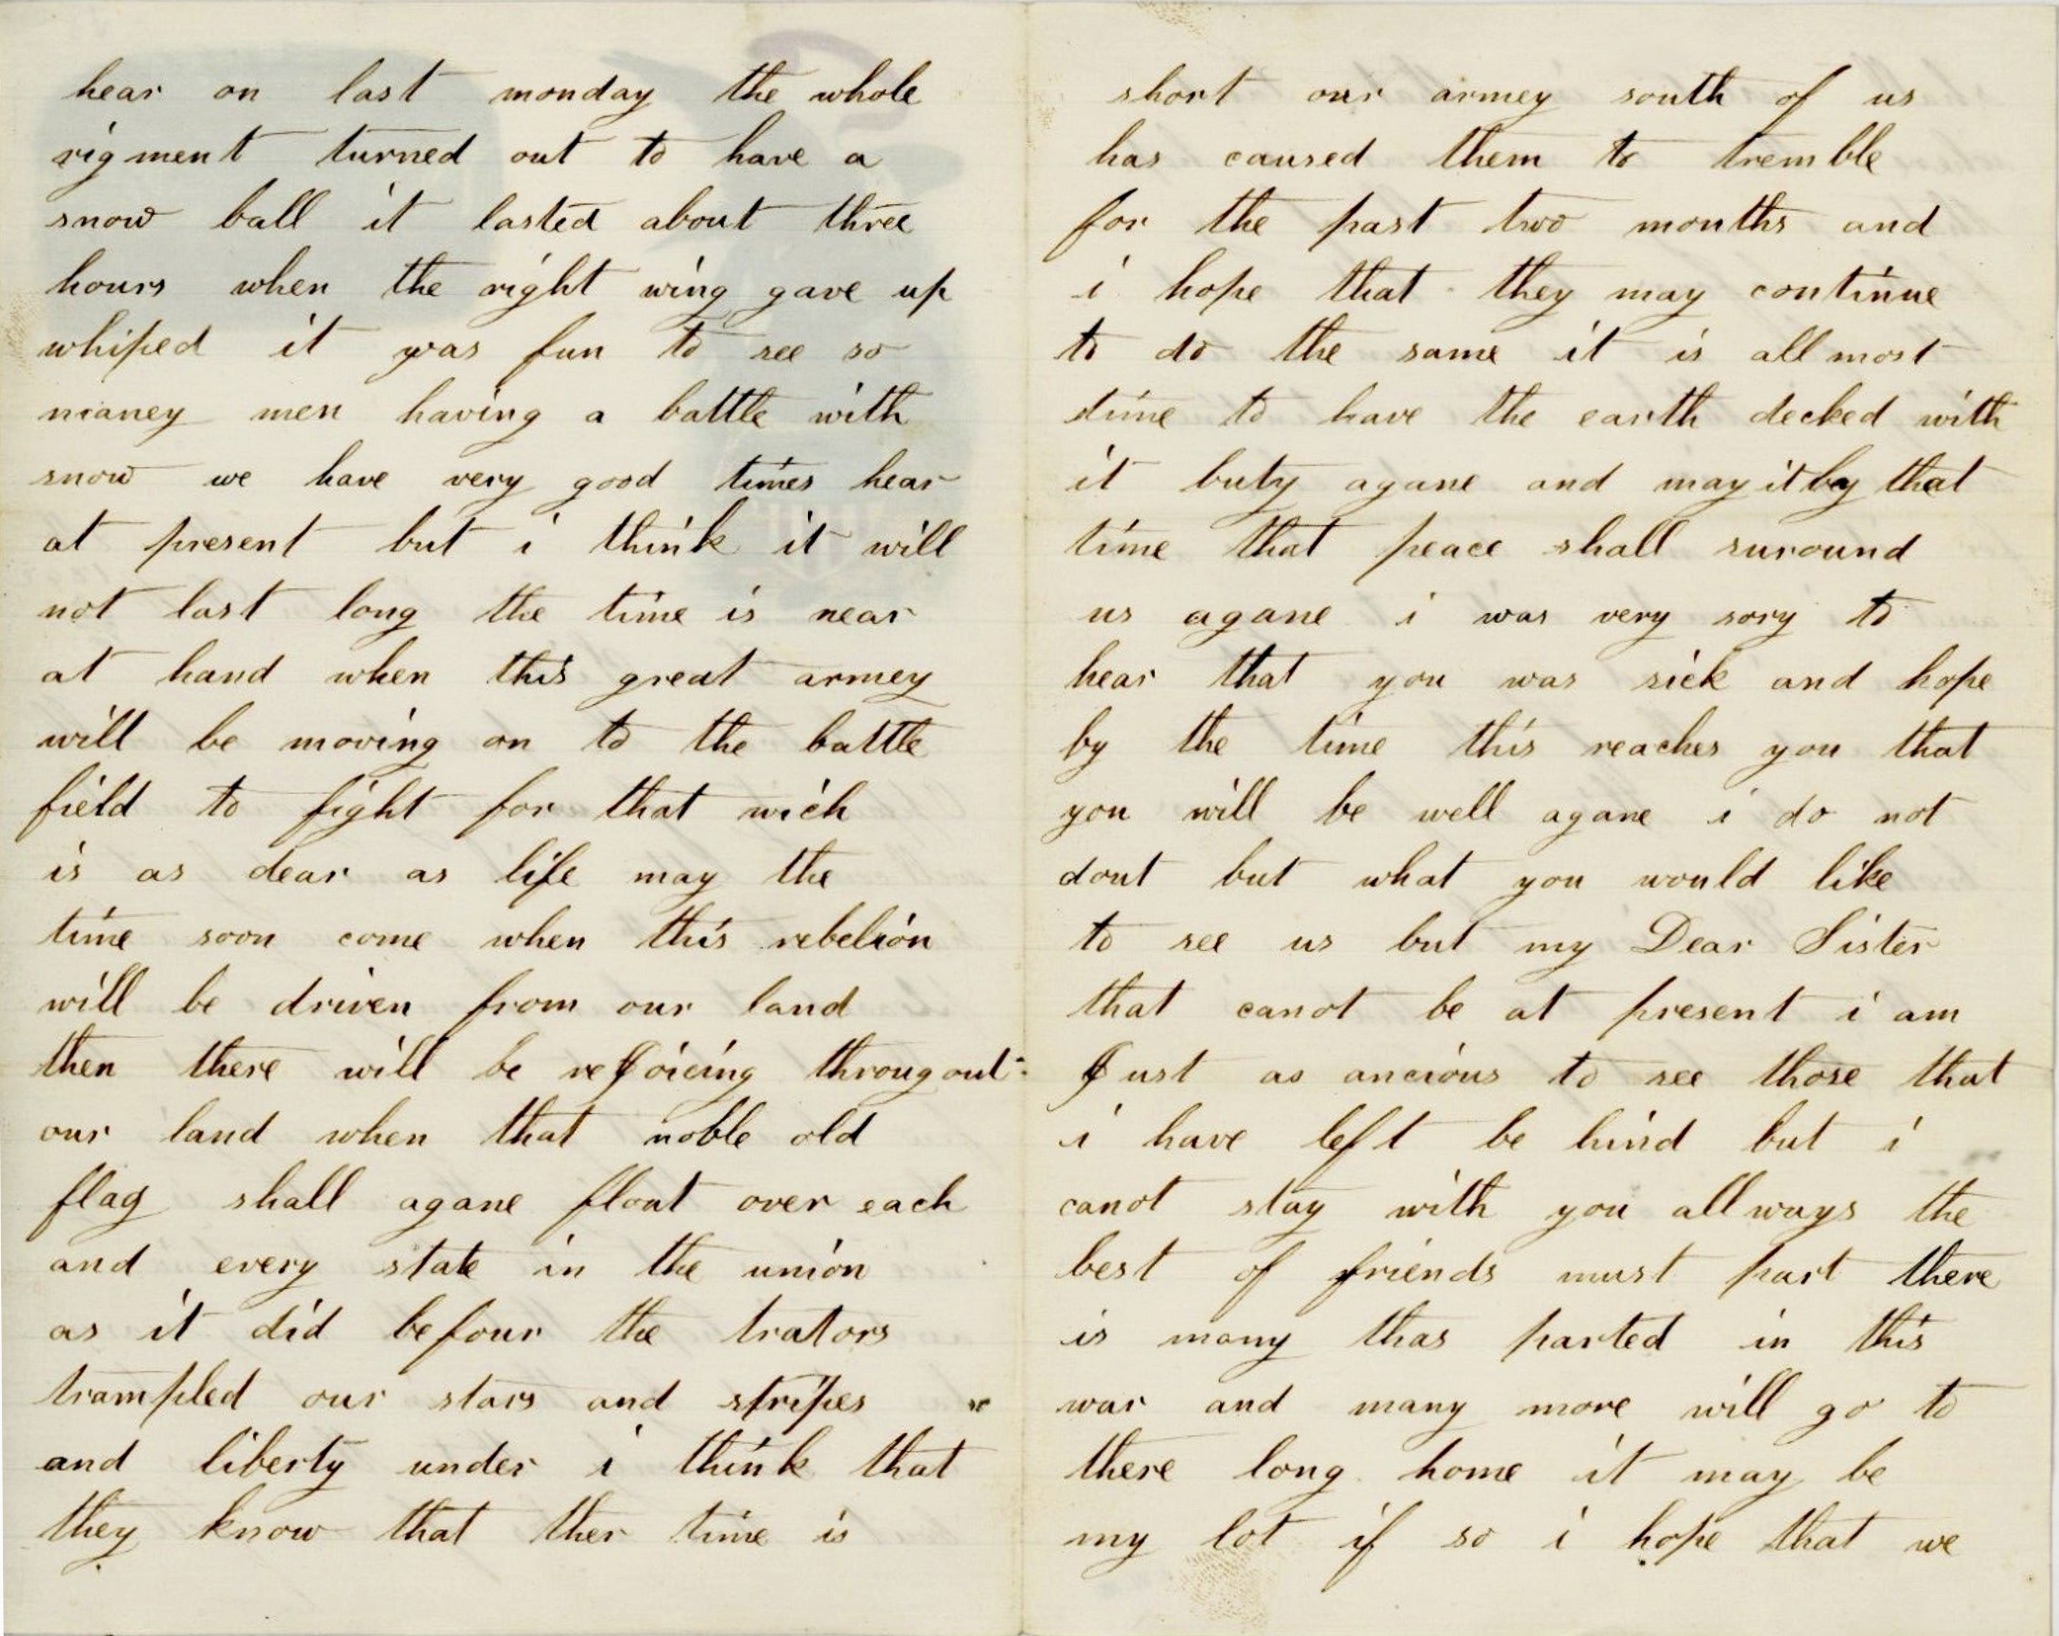 hear on last monday the whole
rigment turned out to have a
snow ball it lasted about three
hours when the right wing gave up
whiped it was fun to see so
maney men having a battle with
snow we have very good times hear
at present but i think it will
not last long the time is near
at hand when this great armey
will be moving on to the battle
field to fight for that wich
is as dear as life may the
time soon come when this rebelion
will be driven from our land
then there will be reJoicing througout
our land when that noble old
flag shall agane float over each
and every state in the union
as it did befour the trators
trampled our stars and stripes
and liberty under i think that
they know that ther time is
short our armey south of us
has caused them to tremble
for the past two months and
i hope that they may continue
to do the same it is all most
time to have the earth decked with
it buty agane and may it by that
time that peace shall suround
us agane i was very sory to
hear that you was sick and hope
by the time this reaches you that
you will be well agane i do not
dout but what you would like
to see us but my Dear Sister
that canot be at present i am
Just as ancious to see those that
i have left be hind but i
canot stay with you all ways the
best of friends must part there
is many thas parted in this
war and many more will go to
there long home it may be
my lot if so i hope that we